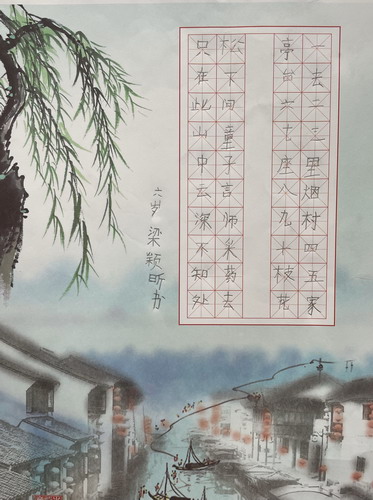 一去二三里烟村四五家
亭台六七座八九十枝花
松下问童子言师采药去
只在此山中云深不知处
六岁 梁颖昕书